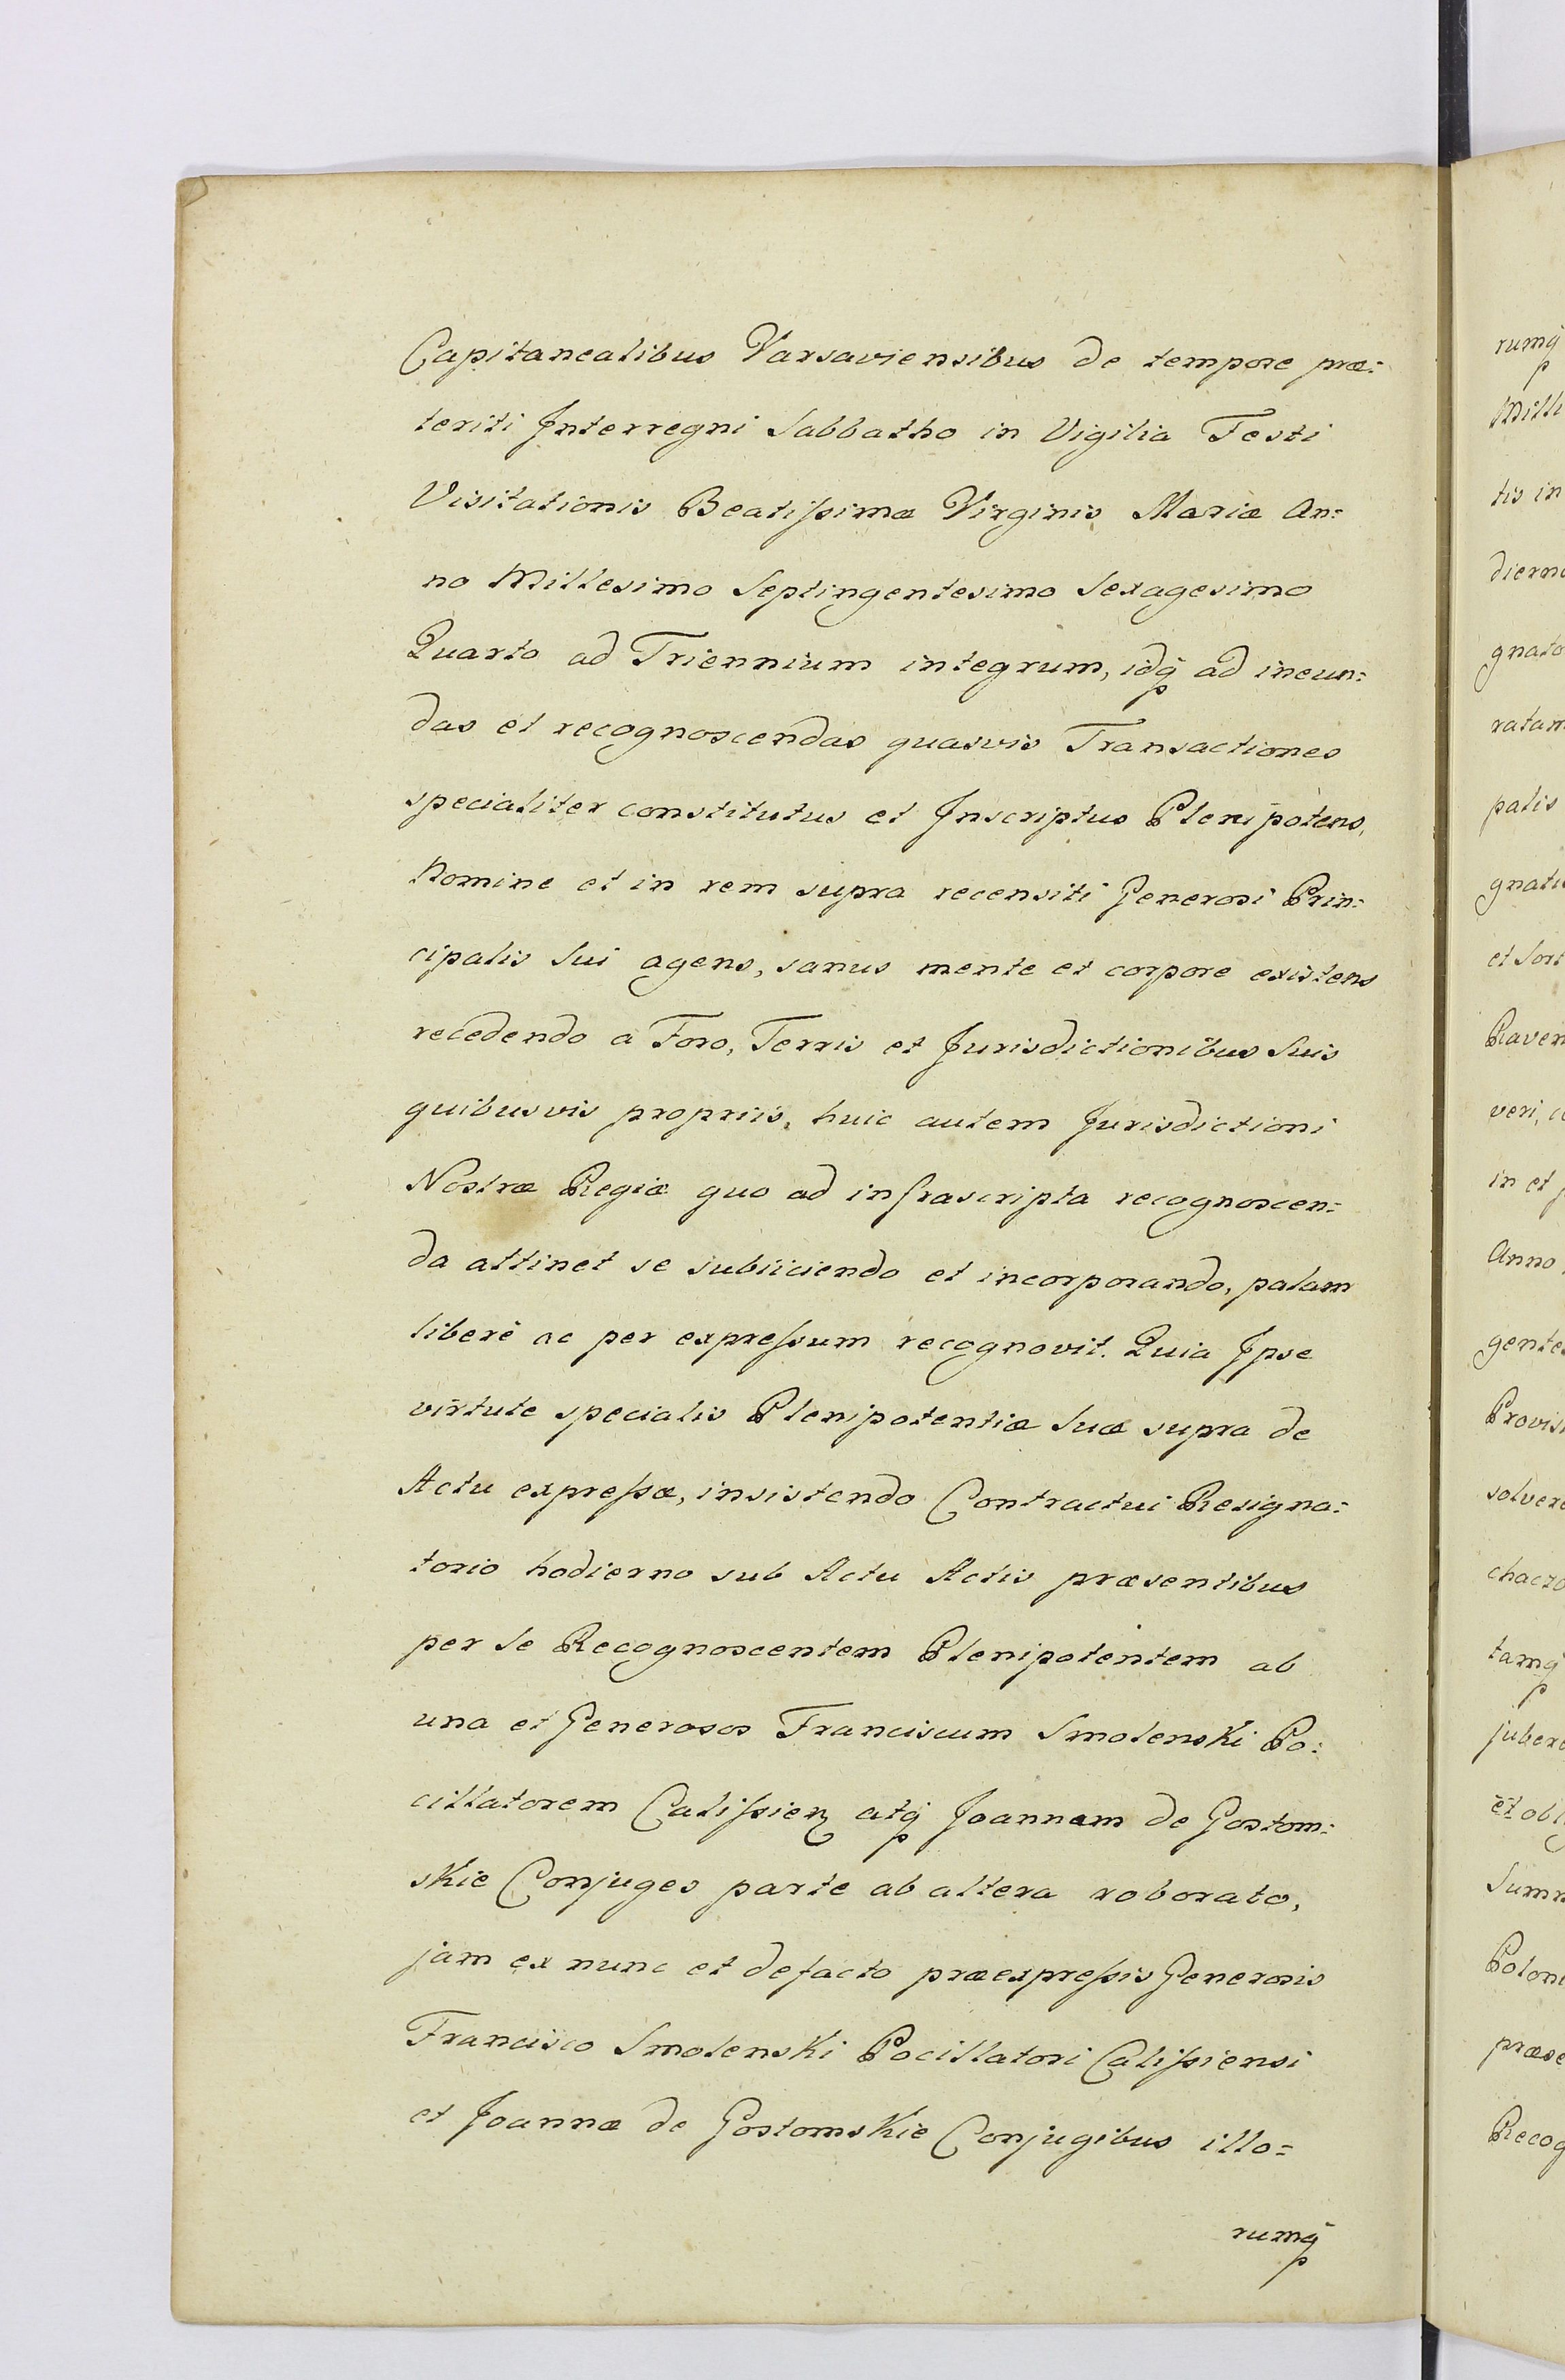 Capitanealibus Varsaviensibus de tempore præ=
teriti Interregni Sabbatho in Vigilia Festi
Visitationis Beatißimæ Virginis Mariæ An=
no Millesimo Septingentesimo Sexagesimo
Quarto ad Triennium integrum, idq̃ ad ineun=
das et recognoscendas quasvis Transactiones
specialiter constitutus et Inscriptus Plenipotens,
Nomine et in rem supra recensiti Generosi Prin=
cipalis Sui agens, sanus mente et corpore existens
recedendo a Foro, Terris et Jurisdictionibus Suis
quibusvis propriis, huic autem Jurisdictioni
Nostræ Regiæ quo ad infrascripta recognoscen=
da attinet se subiiciendo et incorporando, palam
liberè ac per expreßum recognovit. Quia Ipse
virtute specialis Plenipotentiæ Suæ supra de
Actu expreßæ, insistendo Contractui Resigna=
torio hodierno sub Actu Actis præsentibus
per Se Recognoscentem Plenipotentem ab
una et Generosos Franciscum Smolenski Po=
cillatorem Calißien atq̃ Joannam de Gostom=
skie Conjuges parte ab altera roborato,
jam ex nunc et defacto præexpreßis Generosis
Francisco Smolenski Pocillatori Calißiensi
et Joannæ de Gostomskie Conjugibus illo=
rumq̃
rumq̃
Mill
tis in
dierno
gnato
ratam
palis
gnatis
et Sort
Raven
veri,
in et
Anno
gentes
Provis
solvere
chaczo
tamq̃
jubere
et obl
Summ
Poloni
præse
Recog